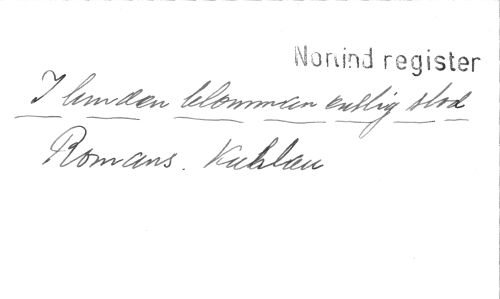 Norlind register
I lunden blomman enslig stod
Romans. Kuhlau